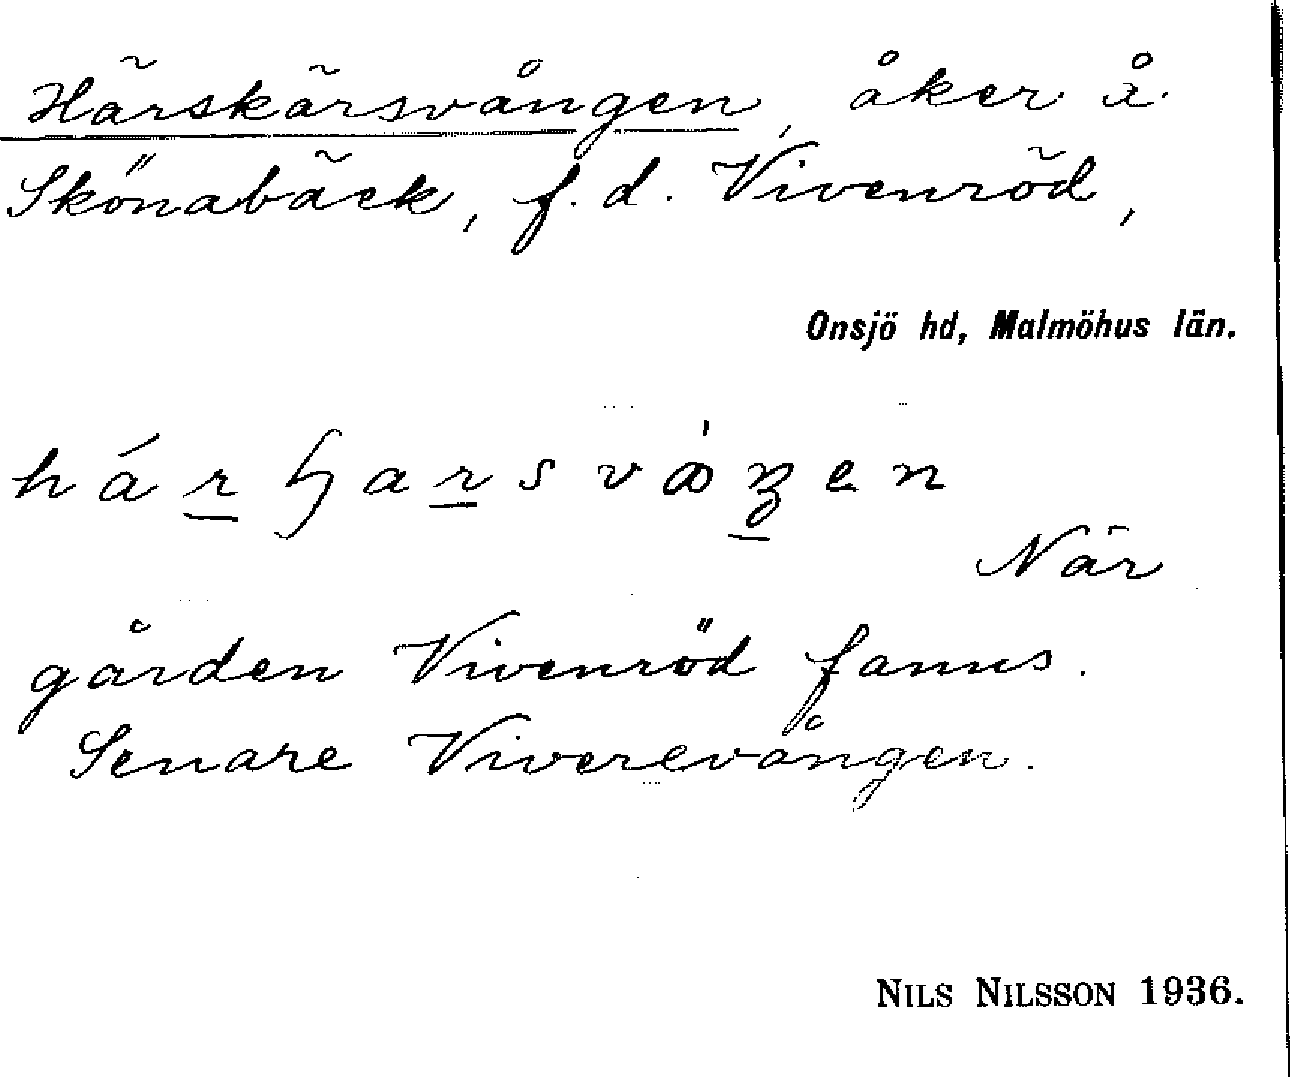 Härskärsvången, åker å
Skönabäck, f.d. Vivenröd,
Onsjö hd, Malmöhus län.
När
gården Vivenröd fanns.
Senare Viverevången.
NILS NILSSON 1936.